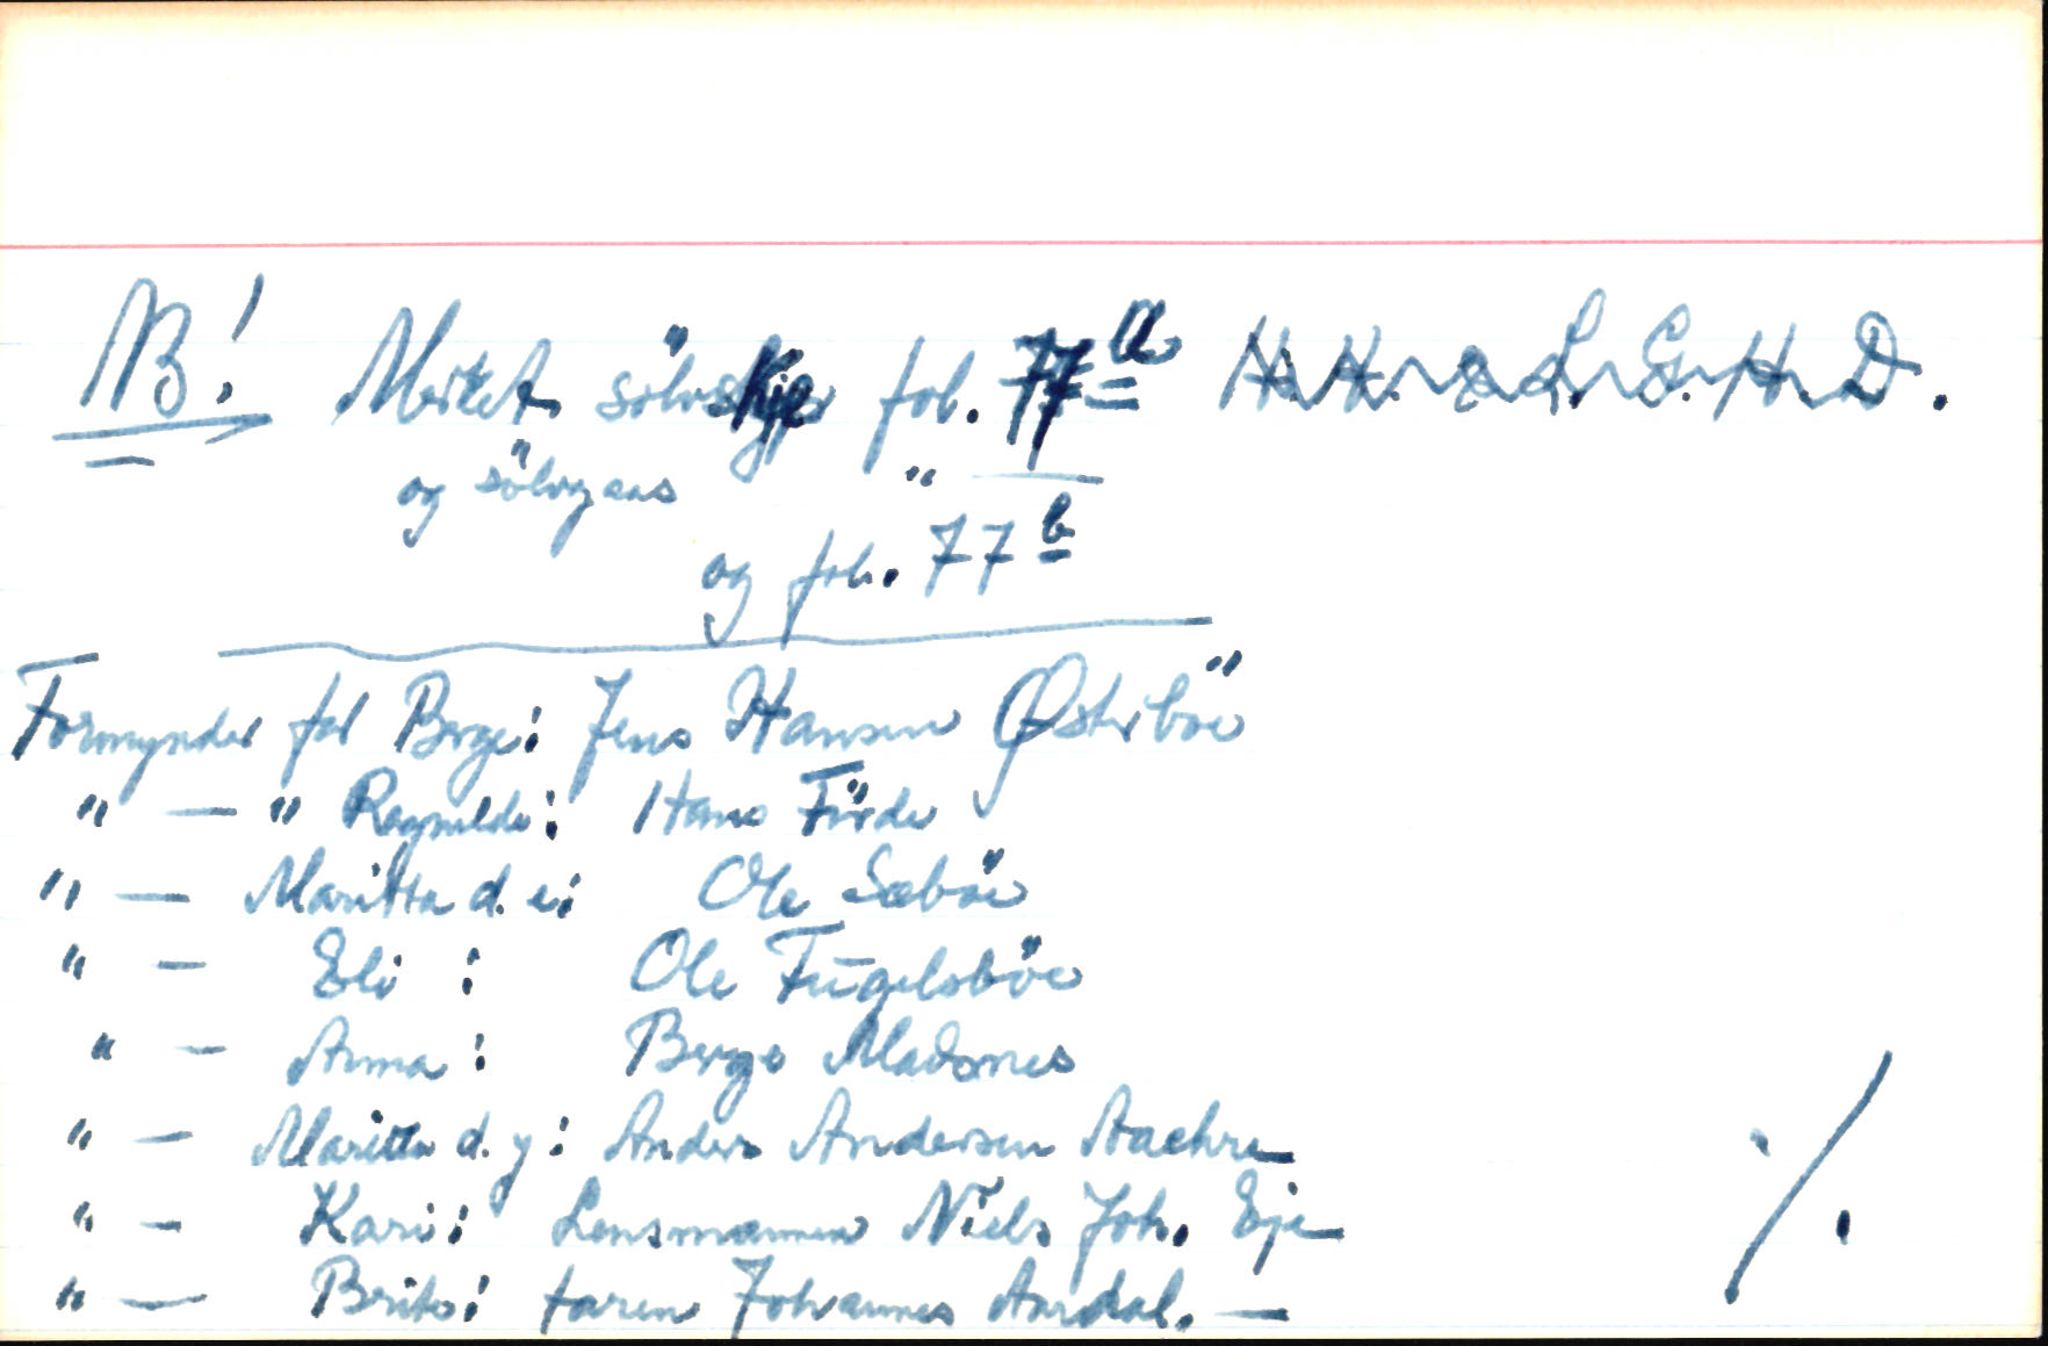 NB! Merket sölvskje fol. 77a
og sölvgaas "
og fol. 77b
Formynder for Børge: Jens Hansen Østerböe
" — " Ragnilde: Hans Förde
" — Maritta d. e: Ole Sæböe
" — Eli : Ole Fügelsböe
" — Anna : Børge Madsnes
" — Maritta d. y: Anders Andersen Aachre
" — Kari: Lensmannen Niels Joh. Eje
" — Brite: faren Johannes Aardal. —
./.